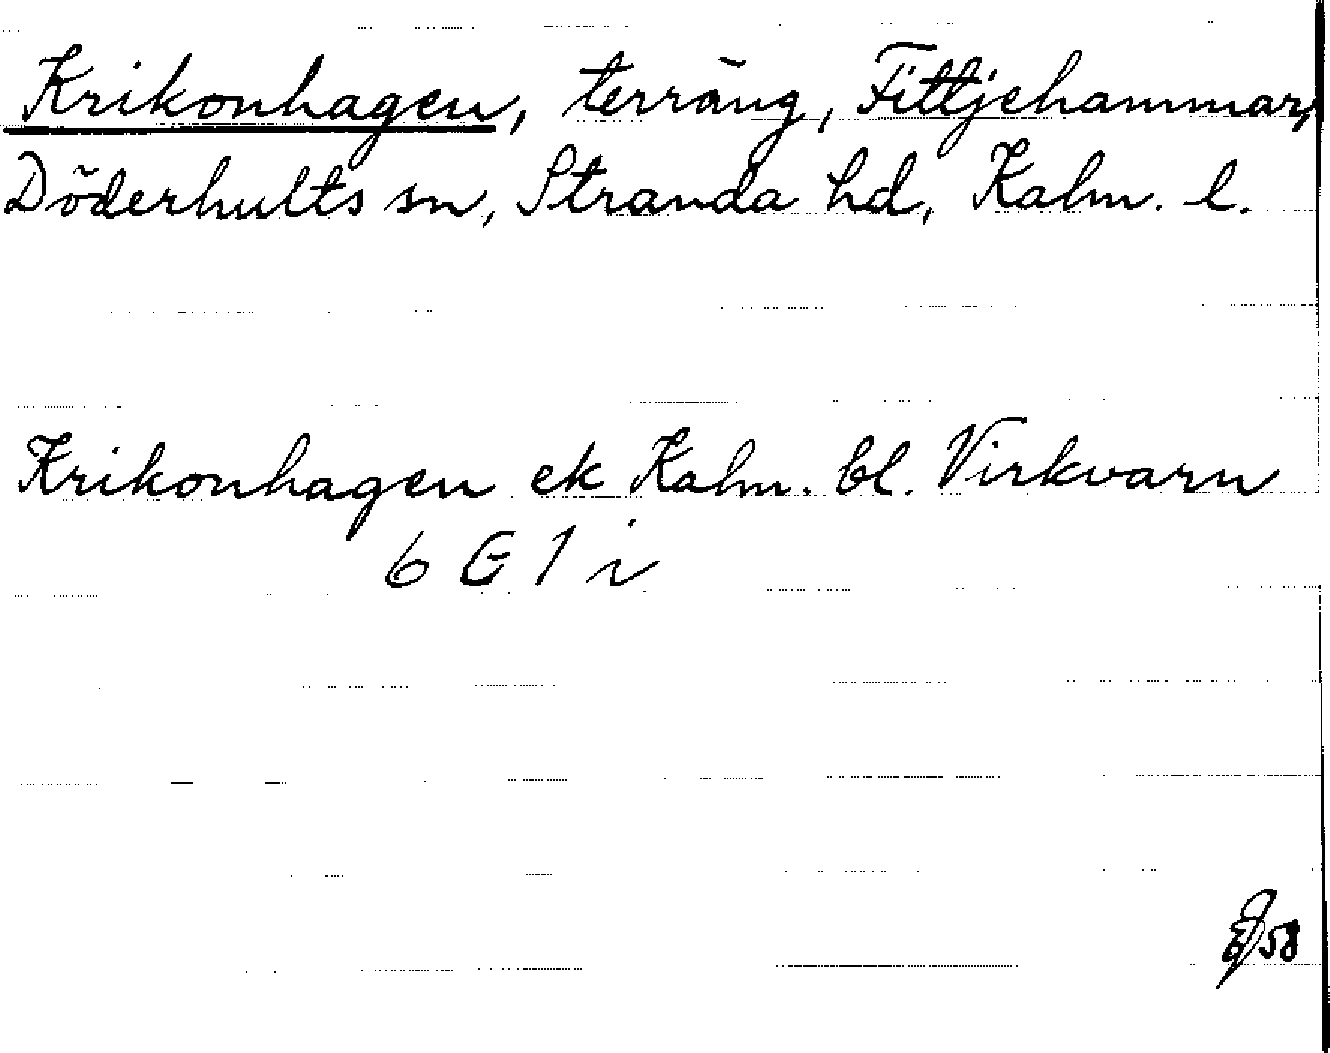 Krikonhagen, terräng, Fittjehammar,
Döderhults sn, Stranda hd, Kalm. l.
Krikonhagen ek Kalm. bl. Virkvarn
6 G 1 i
58